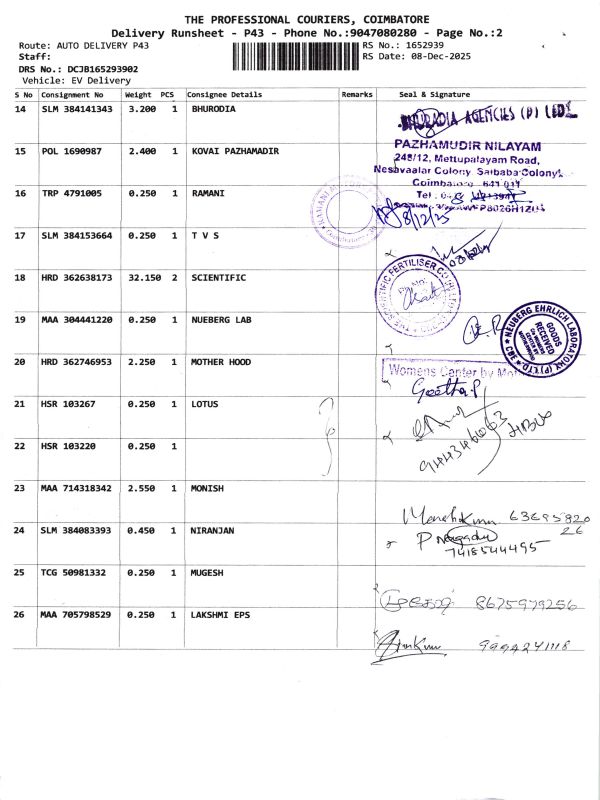 THE PROFESSIONAL COURIERS, COIMBATORE
Delivery Runsheet - P43 - Phone No.:9047080280 - Page No.:2
Route: AUTO DELIVERY P43
Staff:
DRS No.: DCJB165293902
Vehicle: EV Delivery
RS No.: 1652939
RS Date: 08-Dec-2025
S No Consignment No Weight PCS Consignee Details Remarks Seal & Signature
14 SLM 384141343 3.200 1 BHURODIA
BHURADIA AGENCIES (P) LTD
15 POL 1690987 2.400 1 KOVAI PAZHAMADIR
PAZHAMUDIR NILAYAM
248/12, Mettupalayam Road,
Nesavaalar Colony, Saibaba Colony,
Coimbatore
16 TRP 4791005 0.250 1 RAMANI
8/12/25
17 SLM 384153664 0.250 1 T V S
18 HRD 362638173 32.150 2 SCIENTIFIC
THE SCIENTIFIC FERTILISER CO
19 MAA 304441220 0.250 1 NUEBERG LAB
NEUBERG EHRLICH LABORATORY (P) LTD. CBE
GOODS
RECEIVED
20 HRD 362746953 2.250 1 MOTHER HOOD
Womens Center by
Geetha.P
21 HSR 103267 0.250 1 LOTUS
22 HSR 103220 0.250 1
23 MAA 714318342 2.550 1 MONISH
63695820
26
24 SLM 384083393 0.450 1 NIRANJAN
7418544495
25 TCG 50981332 0.250 1 MUGESH
8675979256
26 MAA 705798529 0.250 1 LAKSHMI EPS
9994241118